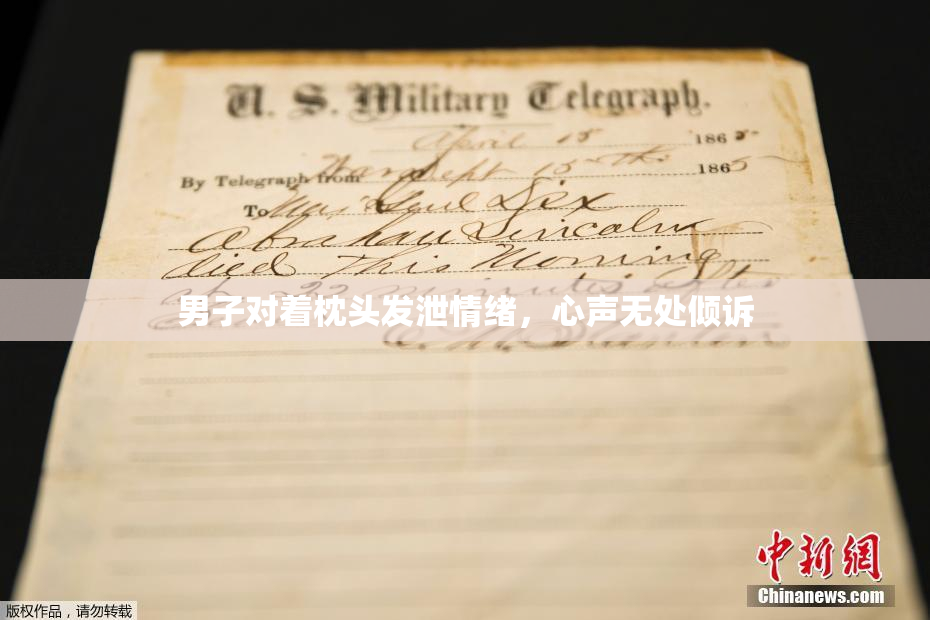 U. S. Military Telegraph.
April 15 1865
By Telegraph from War Dept 15th 1865
To Maj Genl Dix
Abraham Lincoln
died This Morning
at 22 minutes after
男子对着枕头发泄情绪，心声无处倾诉
E. M. Stanton
中新网
Chinanews.com
版权作品，请勿转载